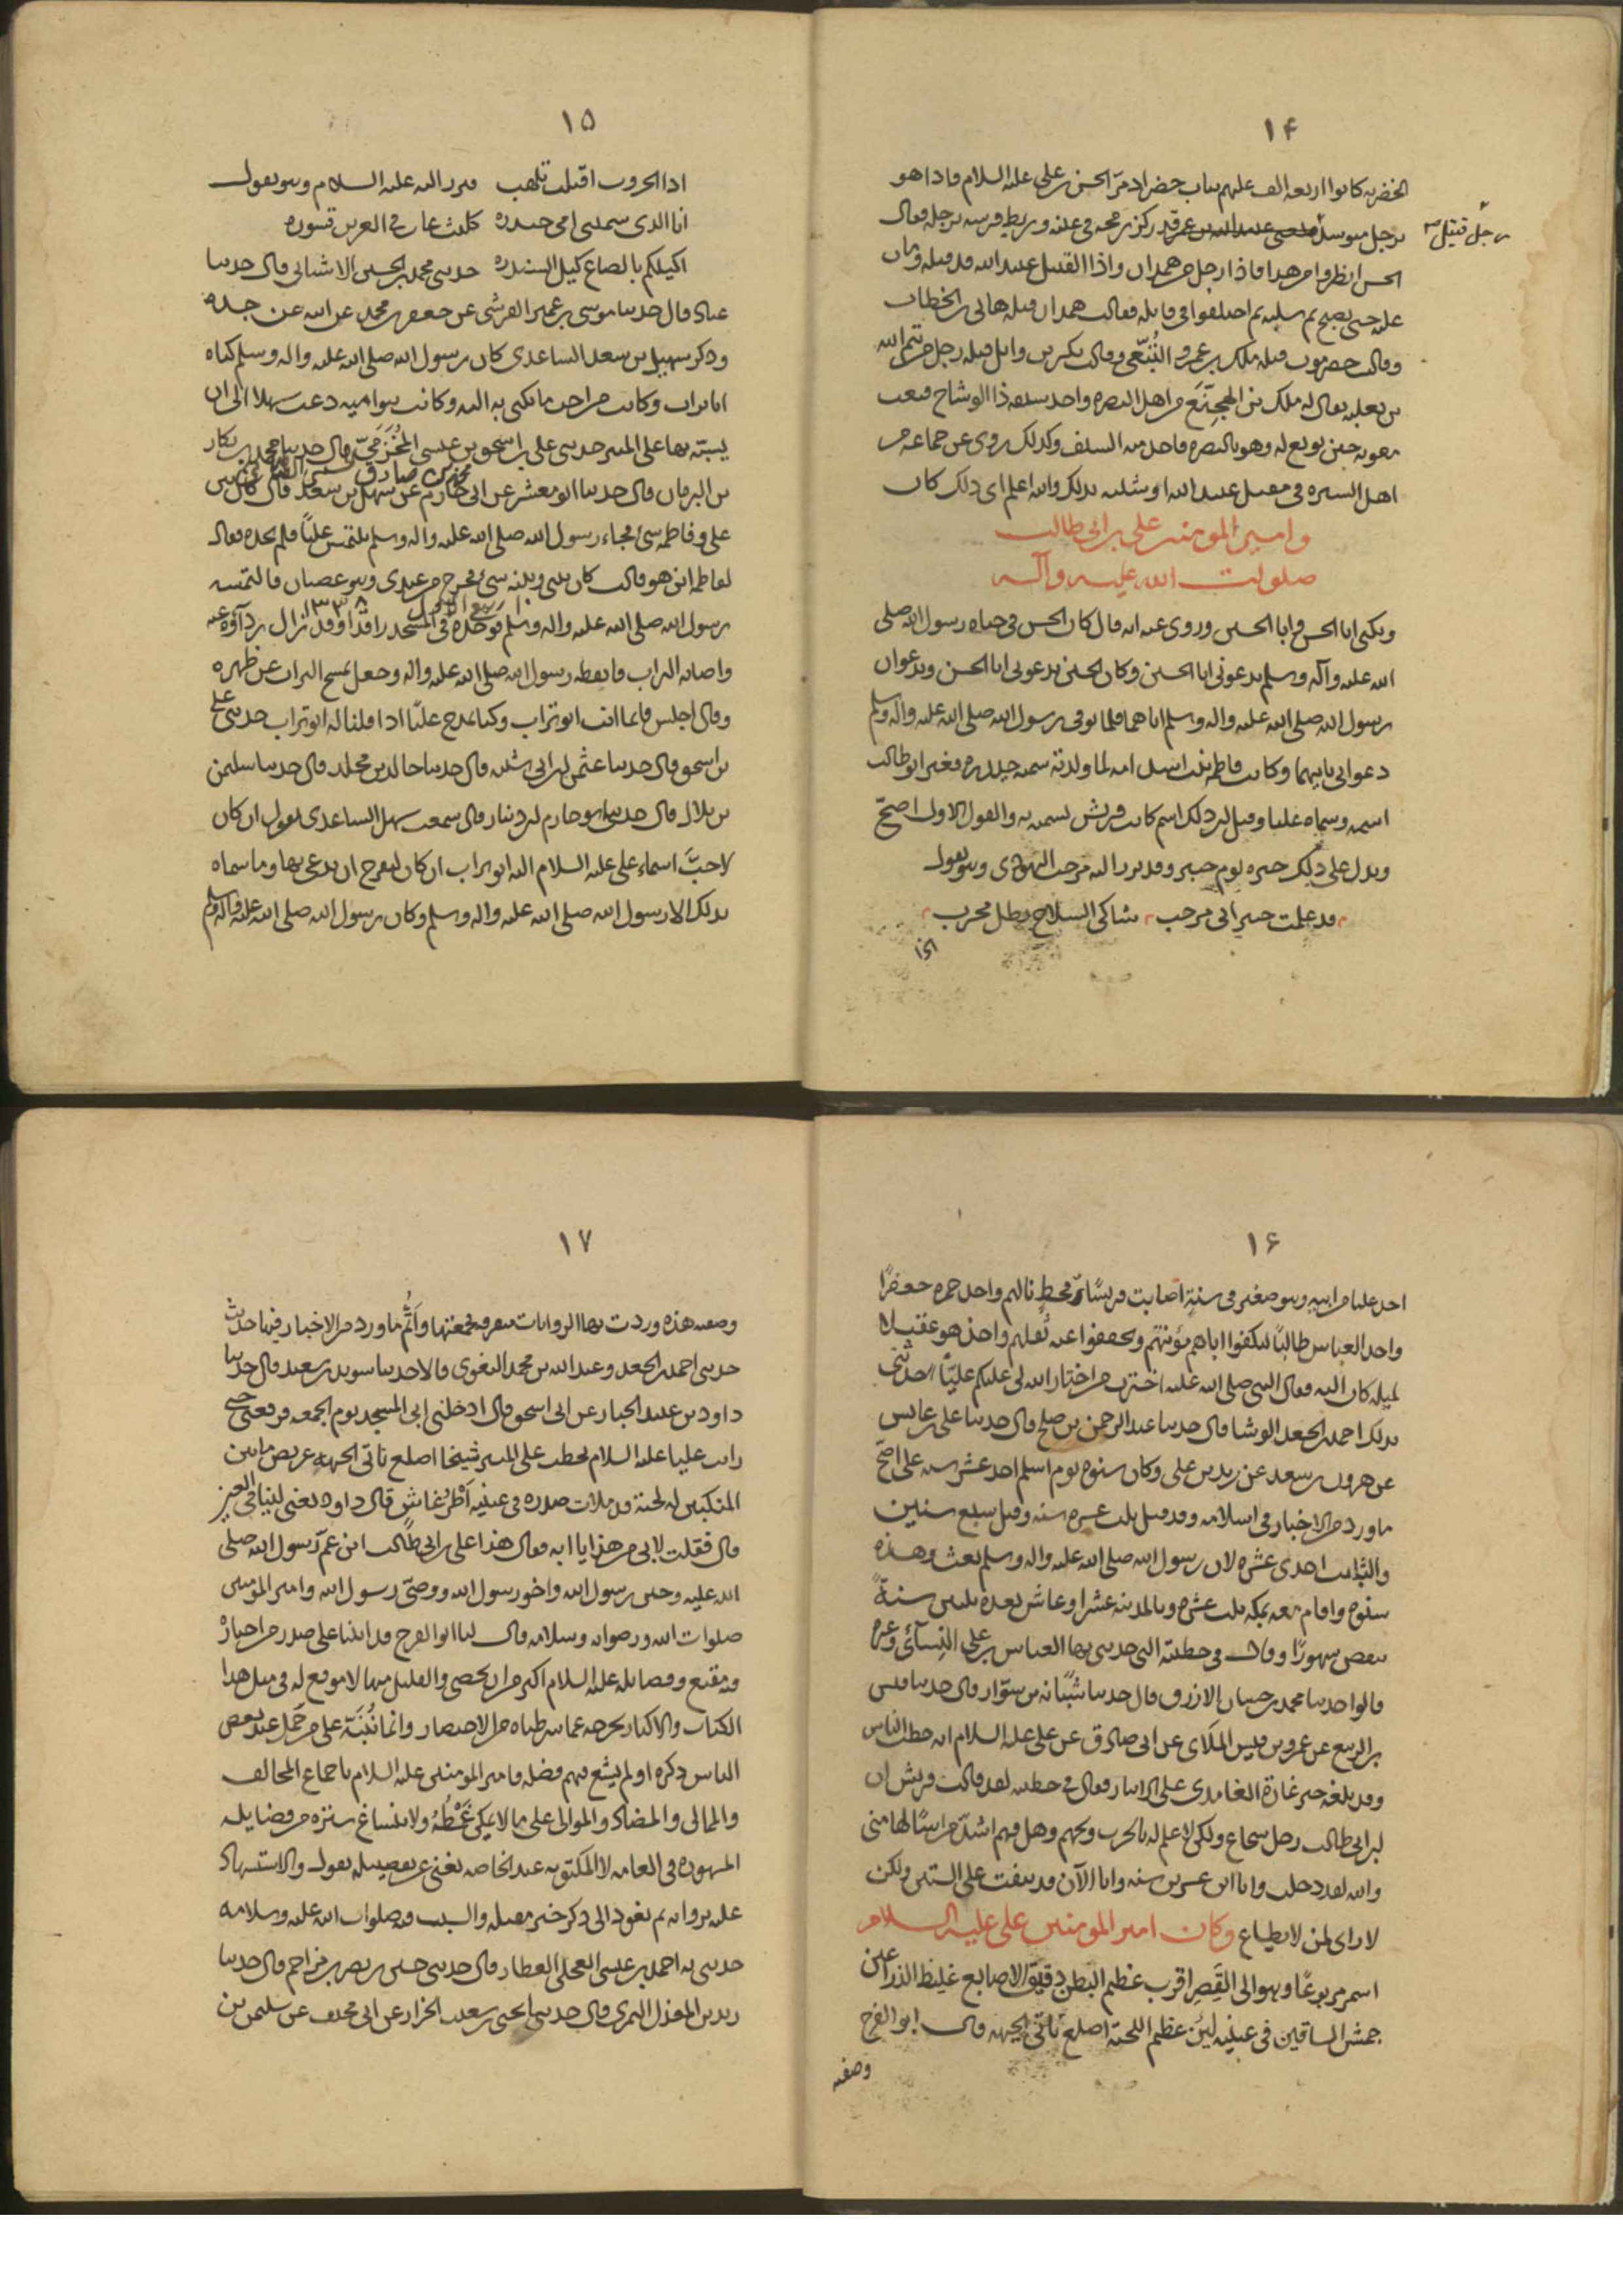 ١۴
الخضريه كانوا اربعه الف عليهم ساب خضر اد مرّ الحسن بن علي عليه السلام فاذا هو
برجل متوسد قد ركز رمحه في عينه وربط فرسه برجله فقال
رجل قتيل
الحسن انظروا من هذا فاذا رجل من همدان واذا القتيل عبيد الله قد قتله وبات
عليه حتى يصبح ثم سلبه ثم اختلفوا في قاتله فقالت همدان قتله هاني بن الخطاب
وقالت حضرموت قتله ملك بن عمرو التِّبْعي وقالت بكر بن وايل قتله رجل من تيم الله
بن ثعلبه يقال له ملك بن الهجِنَّع من اهل البصره واخذ سيفه ذا الوشاح فبعث
معويه حين بويع له وهو بالبصره فاخذ منه السلف وكذلك روى عن جماعه من
اهل السيره في مقتل عبيد الله او شبيه بذلك والله اعلم اى ذلك كان
وامير المومنين على بن ابى طالب
صلوات الله عليه وآله
ويكنى ابا الحسن و ابا الحسين وروى عنه انه قال كان الحسن في حياه رسول الله صلى
الله عليه وآله وسلم يدعوني ابا الحسين وكان الحسين يدعوني ابا الحسن ويدعوان
رسول الله صلى الله عليه واله وسلم اباهما فلما توفى رسول الله صلى الله عليه واله وسلم
دعواني بابيهما وكانت فاطمه بنت اسد امه لما ولدته سمته حيدره فغير ابو طالب
اسمه وسماه عليا وقيل ان ذلك اسم كانت قريش تسميه به والقول الاول اصحّ
ويدل على ذلك خبره يوم خيبر وقد برز اليه مرحب اليهودى وهو يقول
قد علمت خيبر انى مرحب شاكى السلاح بطل مجرب
اذا
١۵
اذا الحروب اقبلت تلهب فبرز اليه عليه السلام وهو يقول
انا الذى سمتنى امى حيدره كليث غاب فى العرين قسوره
اكيلكم بالصاع كيل السندره حدثنى محمد بن الحسين الاشنانى قال حدثنا
عباد قال حدثنا موسى بن عمير القرشى عن جعفر بن محمد عن ابيه عن جده
وذكر سهيل بن سعد الساعدى كان رسول الله صلى الله عليه واله وسلم كناه
ابا تراب وكانت من احب ما يكنى به اليه وكانت بنو اميه دعت سهلا الى ان
يسبّه بها على المنبر حدثنى على بن اسحق بن عيسى المُخَرَّمِيّ قال حدثنا محمد بن بكار
بن الريان قال حدثنا ابو معشر عن ابى حازم عن سهل بن سعد قال كان بين
على وفاطمه شئ فجاء رسول الله صلى الله عليه واله وسلم يلتمس عليًا فلم يجده فقال
لفاطمه اين هو قالت كان بينى وبينه شئ فخرج من عندى وهو غضبان فالتمسه
رسول الله صلى الله عليه واله وسلم فوجده في المسجد راقدًا وقد زال رداؤه عنه
واصابه التراب فايقظه رسول الله صلى الله عليه واله وجعل يمسح التراب عن ظهره
وقال اجلس فانما انت ابو تراب وكنا نمدح عليًّا اذا قلنا له ابو تراب حدثنى على
بن اسحق قال حدثنا عثمن بن ابى شيبه قال حدثنا خالد بن مخلد قال حدثنا سليمن
بن بلال قال حدثنى ابو حازم بن دينار قال سمعت سهل الساعدى يقول ان كان
لاحبَّ اسماء على عليه السلام اليه ابو تراب ان كان ليفرح ان يدعى بها وما سماه
بذلك الا رسول الله صلى الله عليه واله وسلم وكان رسول الله صلى الله عليه واله وسلم
١۶
اخذ عليا من ابيه وهو صغير فى سنة اصابت قريشًا وقحط نالهم واخذ حمزه جعفرًا
واخذ العباس طالبًا ليكفوا اباهم مؤنتهم ويخففوا عنه ثقلهم واخذ هو عقيلا
لميله كان اليه فقال النبى صلى الله عليه اخترت من اختار الله لى عليكم عليًّا حدثنى
بذلك احمد بن الجعد الوشا قال حدثنا عبد الرحمن بن صلح قال حدثنا على بن عابس
عن هرون بن سعد عن زيد بن على وكان سنوه يوم اسلم احد عشر سنه على اصحّ
ما ورد من الاخبار فى اسلامه وقد قيل ثلث عشره سنه وقيل سبع سنين
والثابت احدى عشره لان رسول الله صلى الله عليه واله وسلم بعث وهذه
سنوه واقام معه بمكه ثلث عشره وبالمدينه عشرا وعاش بعده ثلثين سنةً
تنقص شهورًا وقال فى خطبته التى حدثنى بها العباس بن على النسآئى وغيره
قالوا حدثنا محمد بن حسان الازرق قال حدثنا شَبَّابه بن سوّار قال حدثنا قيس
بن الربيع عن عمرو بن قيس الملاى عن ابى صادق عن على عليه السلام انه خطب الناس
وقد بلغه خبر غارة الغامدى على الانبار فقال في خطبته لقد قالت قريش ان
ابن ابى طالب رجل شجاع ولكن لا علم له بالحرب ويحهم وهل فيهم اشدّ مراسًا لها منى
والله لقد دخلت وانا ابن عشرين سنه وانا الآن قد نيفت على الستين ولكن
لا راى لمن لا يطاع وكان امير المومنين على عليه السلام
اسمر مربوعًا وهو الى القِصَر اقرب عظيم البطن دقيق الاصابع غليظ الذراعين
حمش الساقين فى عينيه لين عظيم اللحيه اصلع ناتى الجبهه قال ابو الفرج
وصفته
١٧
وصفته هذه وردت بها الروايات متفرقه فجمعتها وأتمُّ ما ورد من الاخبار فيها حديث
حدثنى احمد بن الجعد وعبد الله بن محمد البغوى قالا حدثنا سويد بن سعيد قال حدثنا
داود بن عبد الجبار عن ابى اسحق قال ادخلنى ابى المسجد يوم الجمعه فرفعنى حتى
رايت عليا عليه السلام يخطب على المنبر شيخا اصلع ناتى الجبهه عريض ما بين
المنكبين له لحية قد ملات صدره فى عينيه اطرغشاش قال داود يعنى لينا فى العين
قال فقلت لابى من هذا يا ابه فقال هذا على بن ابى طالب ابن عمّ رسول الله صلى
الله عليه وختن رسول الله واخو رسول الله ووصىّ رسول الله وامير المومنين
صلوات الله ورضوانه وسلامه قال لنا ابو الفرج قد اتينا على صدر من اخباره
فيه مقنع وفضايله عليه السلام اكثر من ان تحصى والقليل منها لا موقع له فى مثل هذا
الكتاب والاكثار يخرجه عما شرطناه من الاختصار وانما نُنَبّه على من خمل عند بعض
الناس ذكره او لم يشع فيهم فضله فامير المومنين عليه السلام باجماع المخالف
والممالى والمضاد والموالى على ما لا يمكن غَمْطُه ولا ينساغ ستره من فضايله
المشهوره فى العامه لا المكتوبه عند الخاصه يغنى عن تفضيله بقول والاستشهاد
عليه بروايه ثم نعود الى ذكر خبر مقتله والسبب فيه صلوات الله عليه وسلامه
حدثنى به احمد بن عيسى العجلى العطار قال حدثنى حسين بن نصر بن مزاحم قال حدثنا
زيد بن المعذل النمرى قال حدثنى يحيى بن سعيد الجزار عن ابى مخنف عن سليمن بن